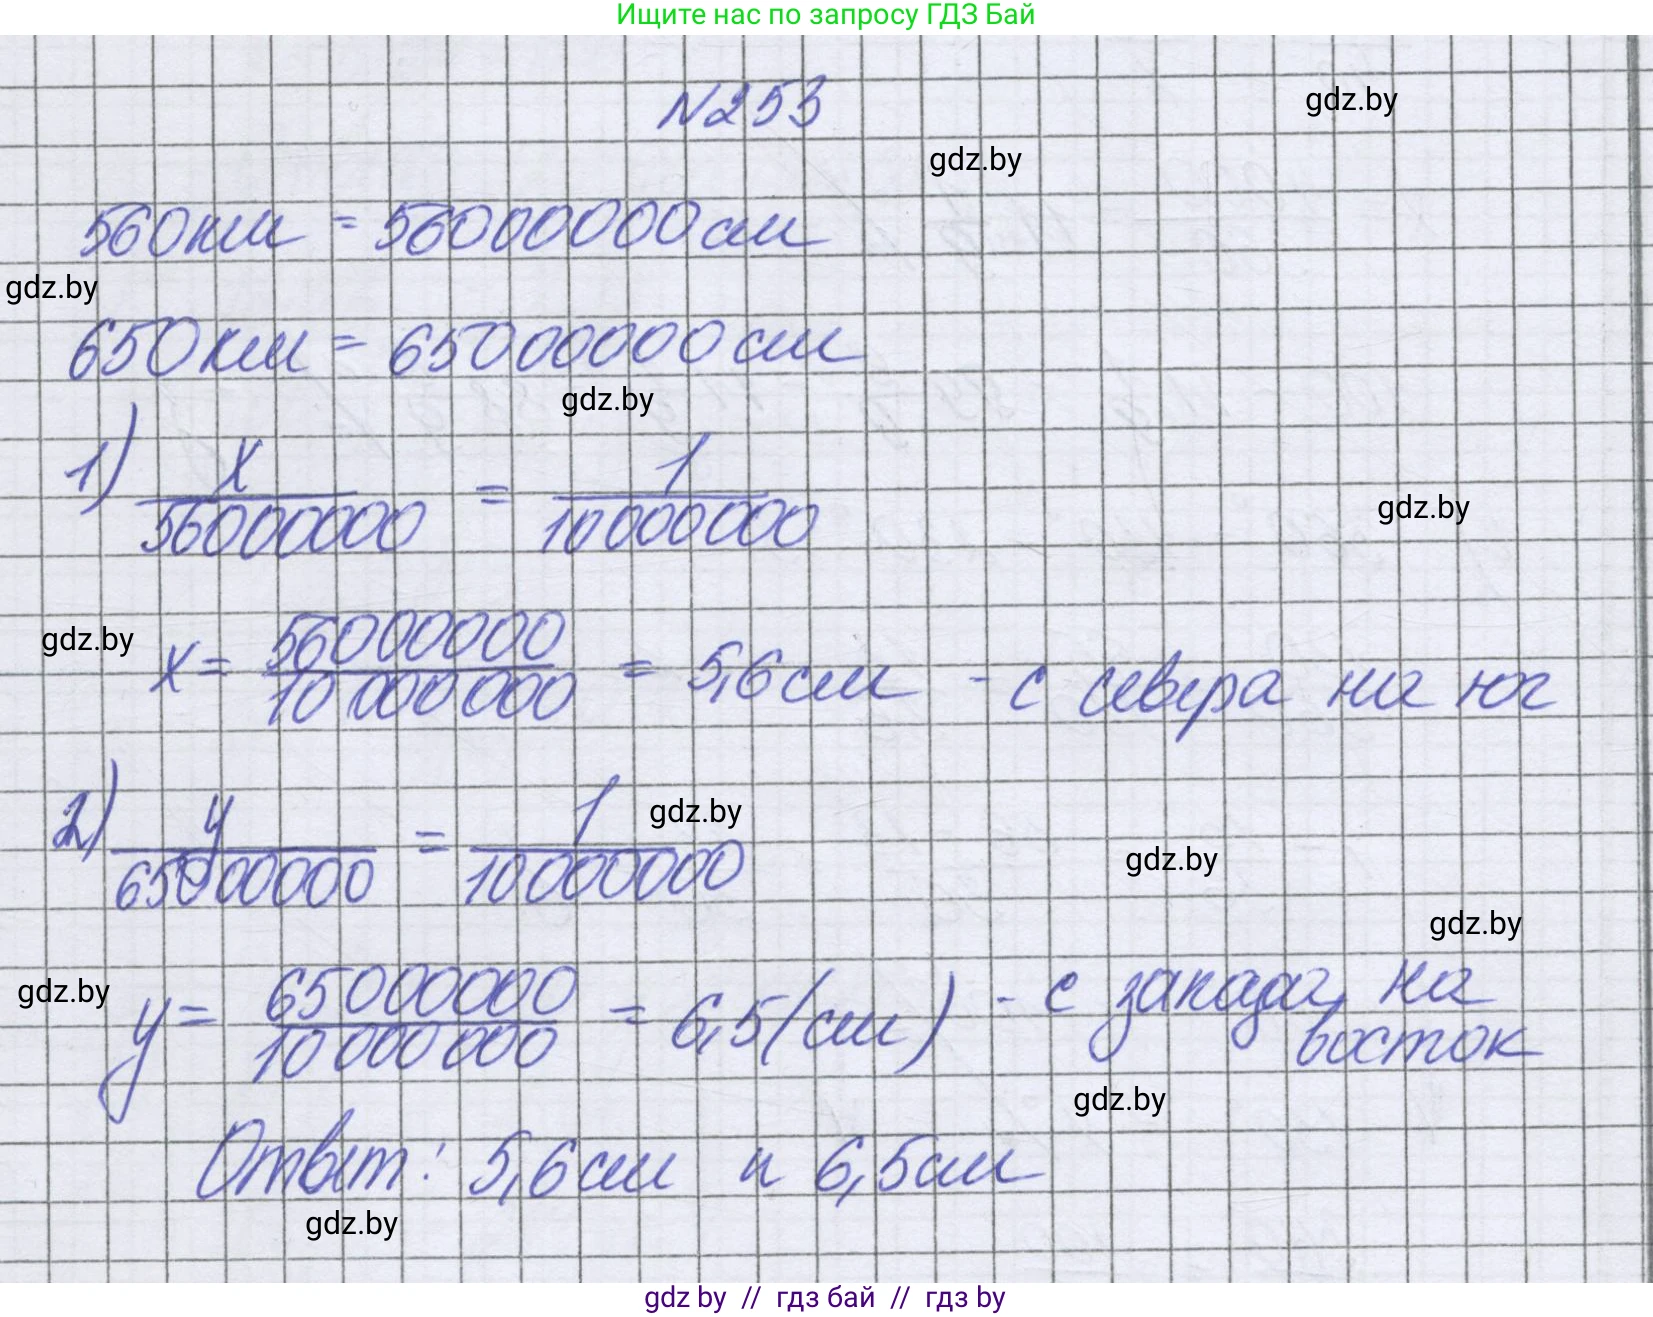 Ищите нас по запросу ГДЗ Бай
N253
gdz.by
gdz.by
560км = 56000000см
gdz.by
650км = 65000000см
gdz.by
1) x/56000000 = 1/10000000
gdz.by
gdz.by
x = 56000000/10000000 = 5,6см - с севера на юг
2) y/65000000 = 1/10000000
gdz.by
gdz.by
gdz.by
gdz.by
y = 65000000/10000000 = 6,5(см) - с запада на
восток
gdz.by
Ответ: 5,6см и 6,5см
gdz.by
gdz by // гдз бай // гдз by